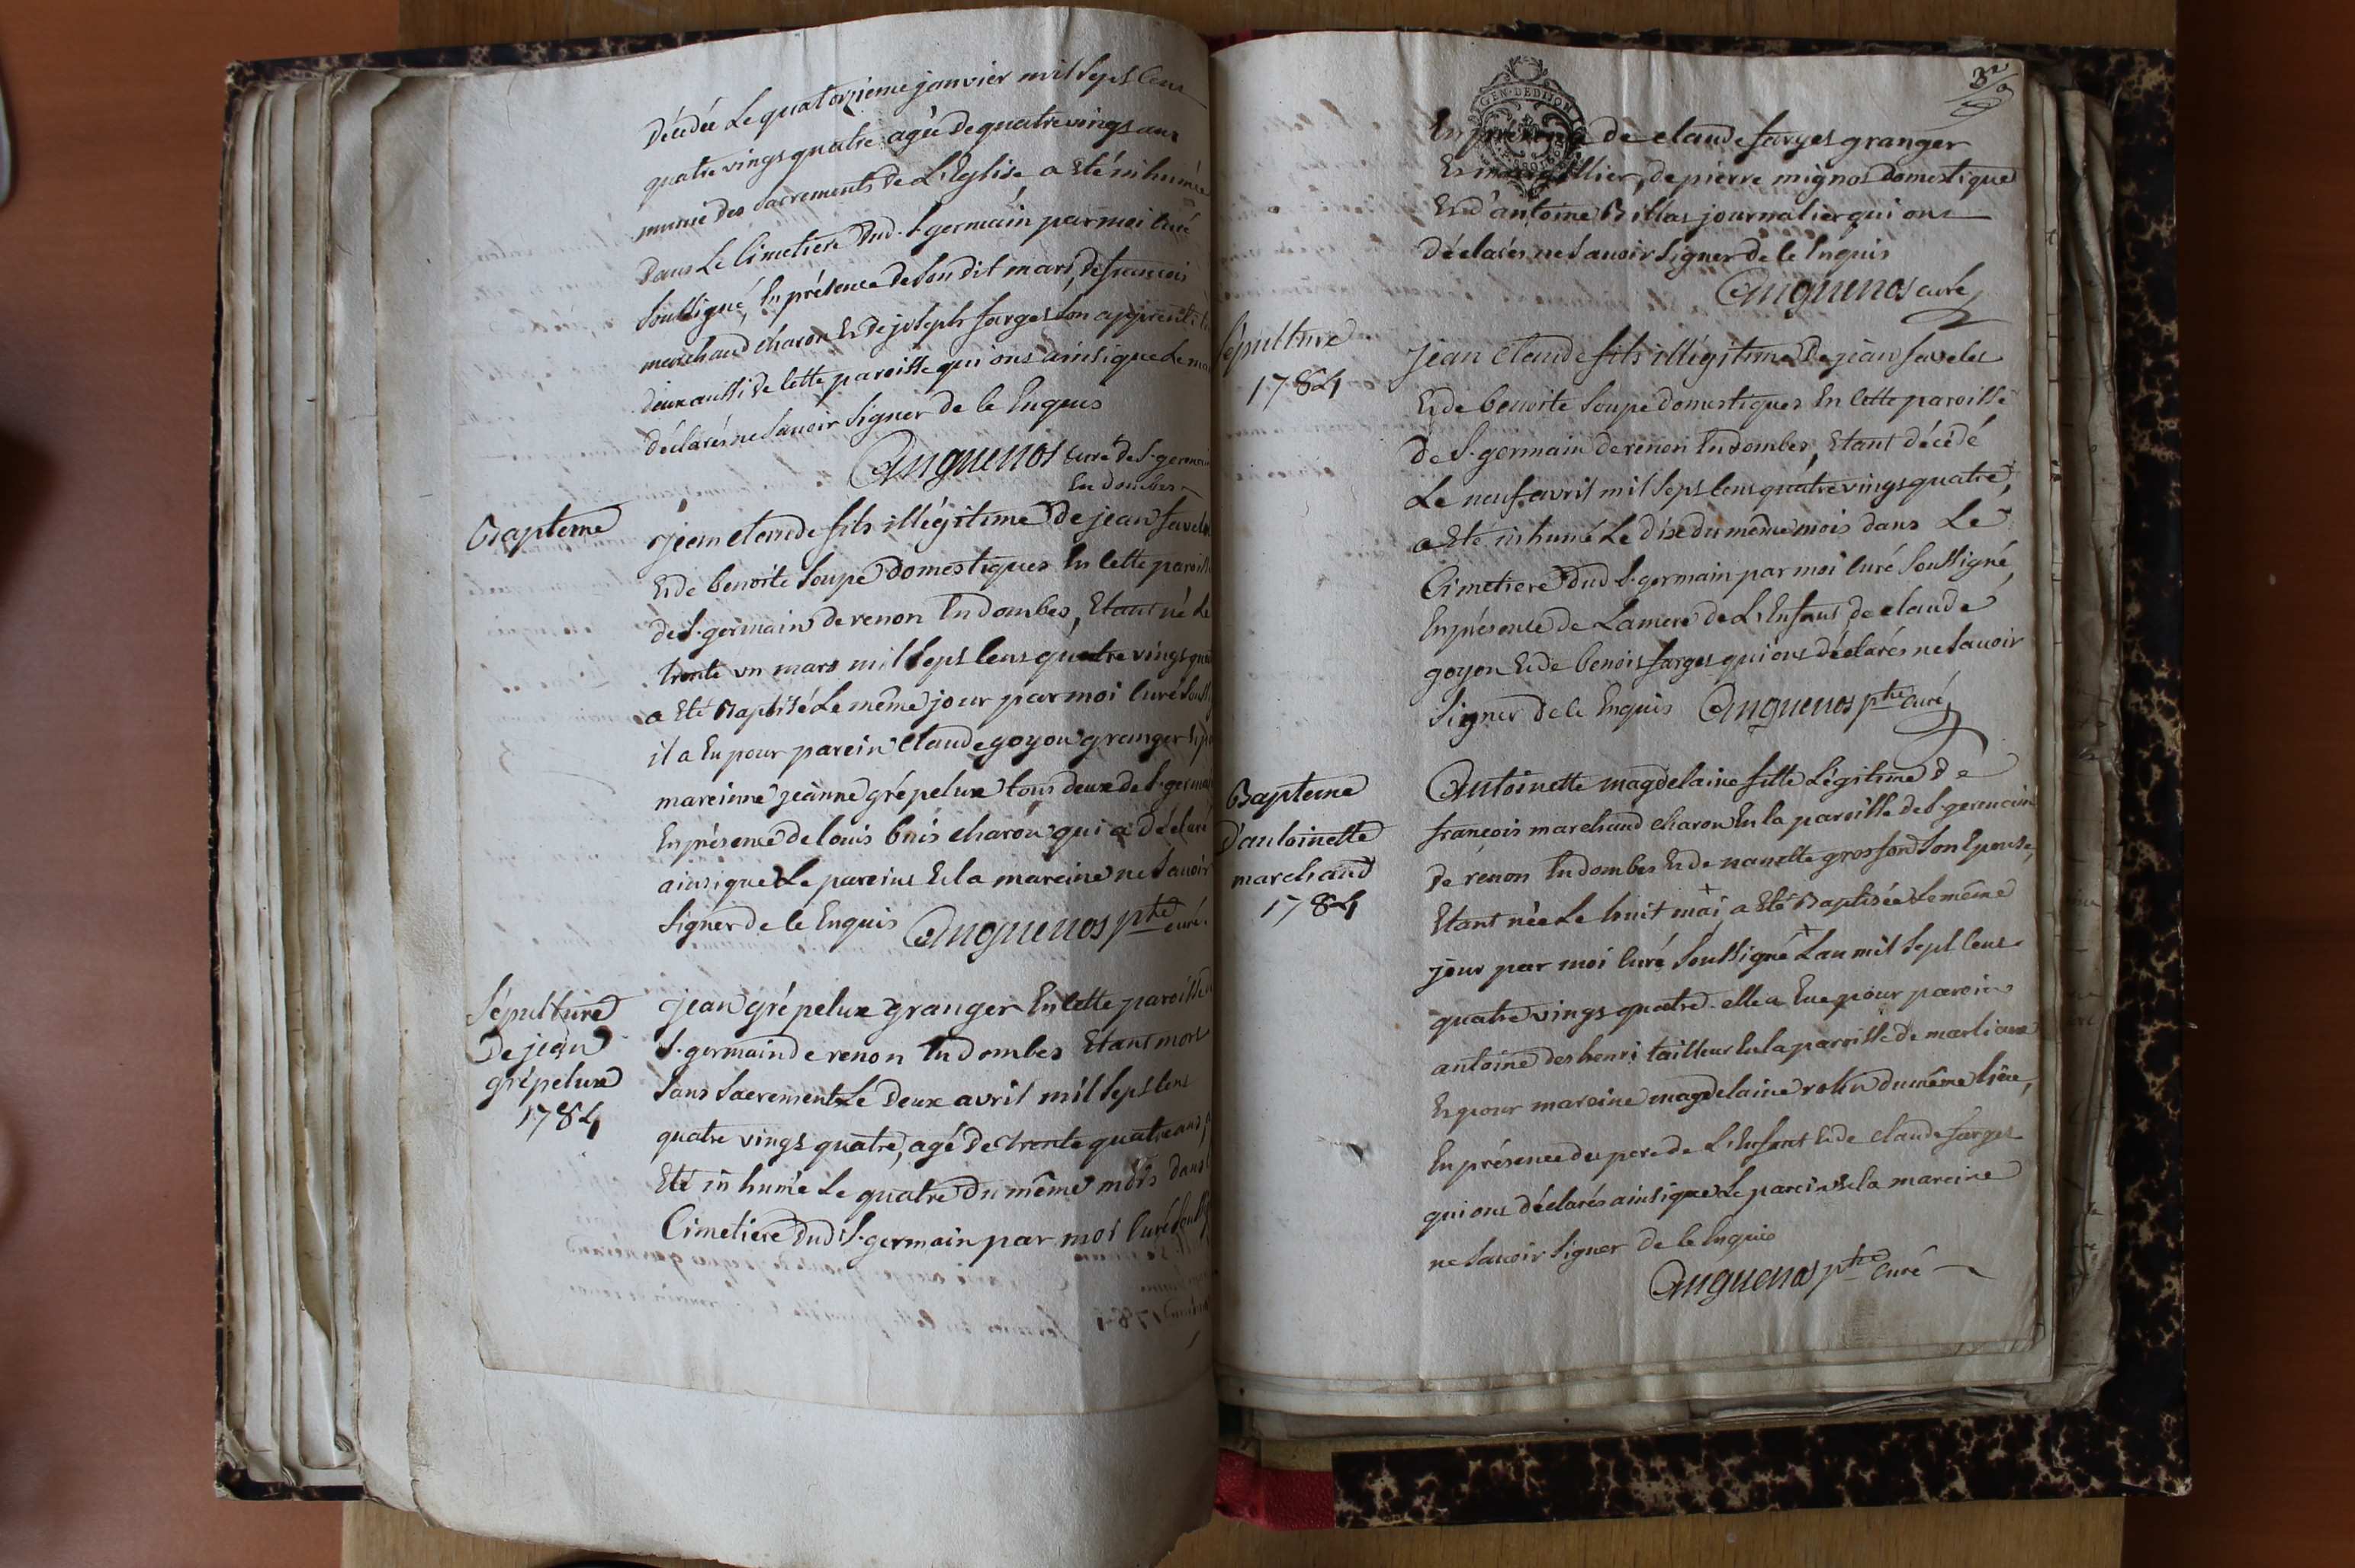 décédée Le quatorzieme janvier mil Sept Cens
quatre vings quatre agée de quatre vings ans
munie des Sacrements de L'Eglise a Eté inhumée
dans Le Cimetiere dud. S. germain par moi Curé
Soussigné, En présence de Son dit mari, de francois
marchand charon Et de joseph farges Son apprentif
deux aussi de Cette paroisse qui ons ainsi que Le
déclarés ne Savoir Signer de Ce Enquis
Anguenos Curé de S. germain
En dombes
Bapteme
jean claude fils illégitime de jean favelet
Et de benoite Soupe domestiques En Cette paroisse
de S. germain de renon En dombes, Etant né Le
trente un mars mil Sept Cens quatre vings
a Eté Baptisé Le même jour par moi Curé
il a Eu pour parein Claude goyon granger
mareinne jeanne grépelux tous deux de S. germain
En présence de Louis buis charon qui a déclaré
ainsi que Le parein Et la mareine ne Savoir
Signer de Ce Enquis Anguenos ptre curé.
Sépulture
De jean
grépelux
1784
jean grépelux granger En Cette paroisse
S. germain de renon En dombes Etant mort
Sans Sacrements Le deux avril mil Sept Cens
quatre vings quatre, agé de trente quatre ans,
Eté inhumé Le quatre du même mois dans
Cimetiere dud S. germain par moi Curé
32
En présence de claude farges granger
Et marguillier, de pierre mignot domestique
Et d'antoine Billas journalier qui ons
déclarés ne Savoir Signer de Ce Enquis
Anguenos curé
Sépulture
1784
jean Claude fils illégitime de jean favelet
Et de benoite Soupe domestiques En Cette paroisse
de S. germain de renon En dombes, Etant décédé
Le neuf avril mil Sept Cens quatre vings quatre,
a Eté inhumé Le dix du même mois dans Le
Cimetiere dud S. germain par moi Curé Soussigné,
En présence de La mere de L'Enfant de claude
goyon Et de benois farges qui ons déclarés ne Savoir
Signer de Ce Enquis Anguenos ptre Curé
Bapteme
d'antoinette
marchand
1784
Antoinette magdelaine fille Légitime de
françois marchand charon En la paroisse de S. germain
de renon En dombes Et de nanette grosfond Son Epouse,
Etant née Le huit mai a Eté Baptisée Le même
jour par moi Curé Soussigné L'an mil Sept Cens
quatre vings quatre. elle a Eue pour parein
antoine des henri tailleur En la paroisse de marlieux
Et pour mareine magdelaine rolin du même Lieu,
En présence du pere de L'Enfant Et de claude farges
qui ons déclarés ainsi que Le parein Et la mareine
ne Savoir Signer de Ce Enquis
Anguenos ptre Curé